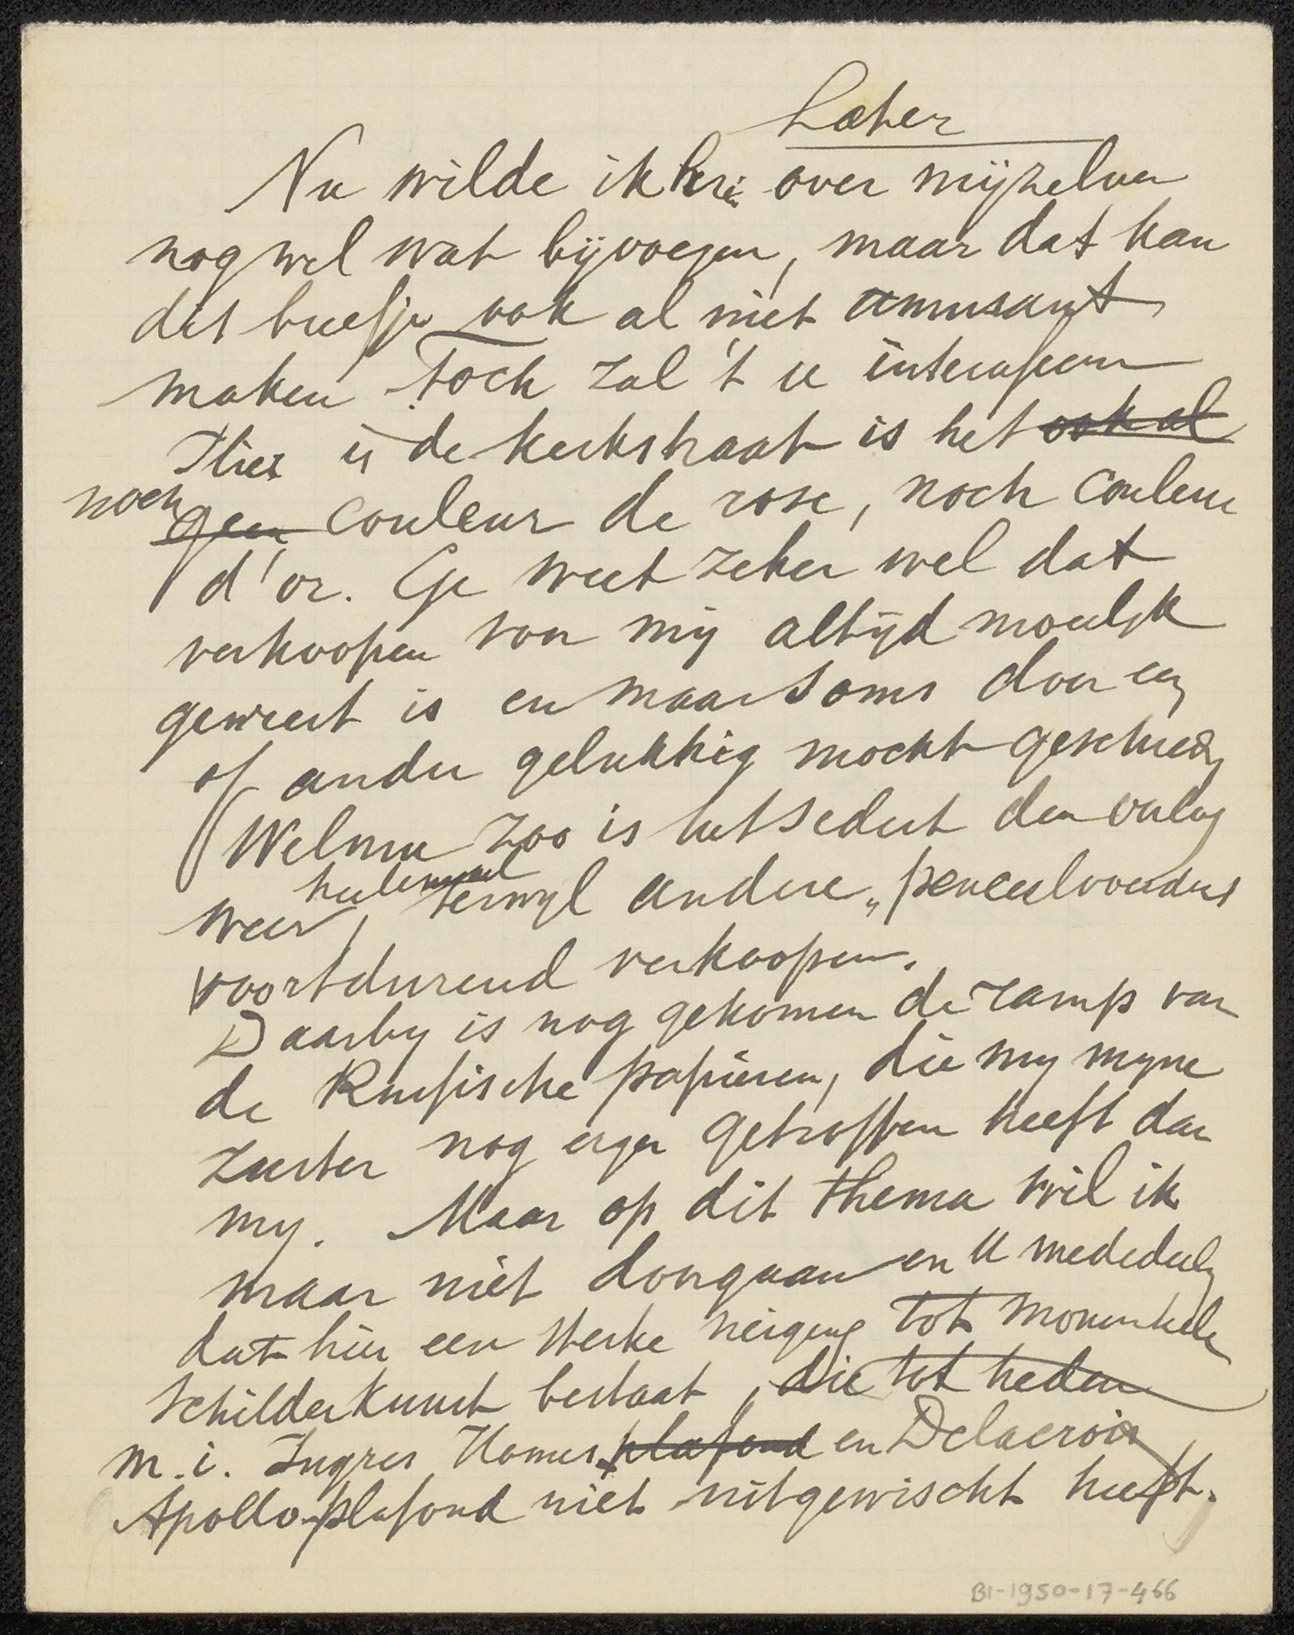 Later
Nu wilde ik hier over mijzelven
nog wel wat bijvoegen, maar dat kan
dit briefje ook al niet amusant
maken. Toch zal 't u interesseren
Hier in de Kerkstraat is het ook al
noch geen couleur de rose, noch couleur
d'or. Ge weet zeker wel dat
verkoopen voor mij altijd moeilijk
geweest is en maar soms door een
of ander gelukkig mocht geschieden
Welnu zoo is het sedert den oorlog
weer, helemaal terwijl andere „penceelvoerders
voortdurend verkoopen.
Daarby is nog gekomen de ramp van
de Russische papieren, die my myne
zuster nog erger getroffen heeft dan
my. Maar op dit thema wil ik
maar niet doorgaan en U mededeelen
dat hier een sterke neiging tot monumentele
schilderkunst bestaat, die tot heden
m.i. Ingres Homerus plafond en Delacroix
Apollo-plafond niet uitgewischt heeft.
BI-1950-17-466